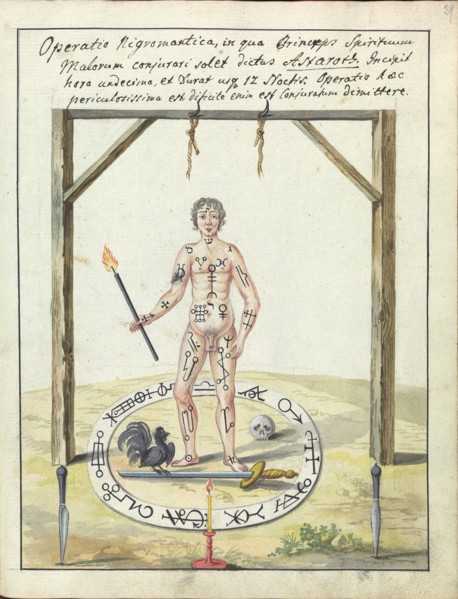 Operatio Nigromantica, in qua Princeps Spirituum
Malorum conjurari solet dictus Astaroth. Incipit
hora undecima, et Durat usq 12 Noctis. Operatio hac
periculosissima est dificile enim est Conjuratum dimittere.